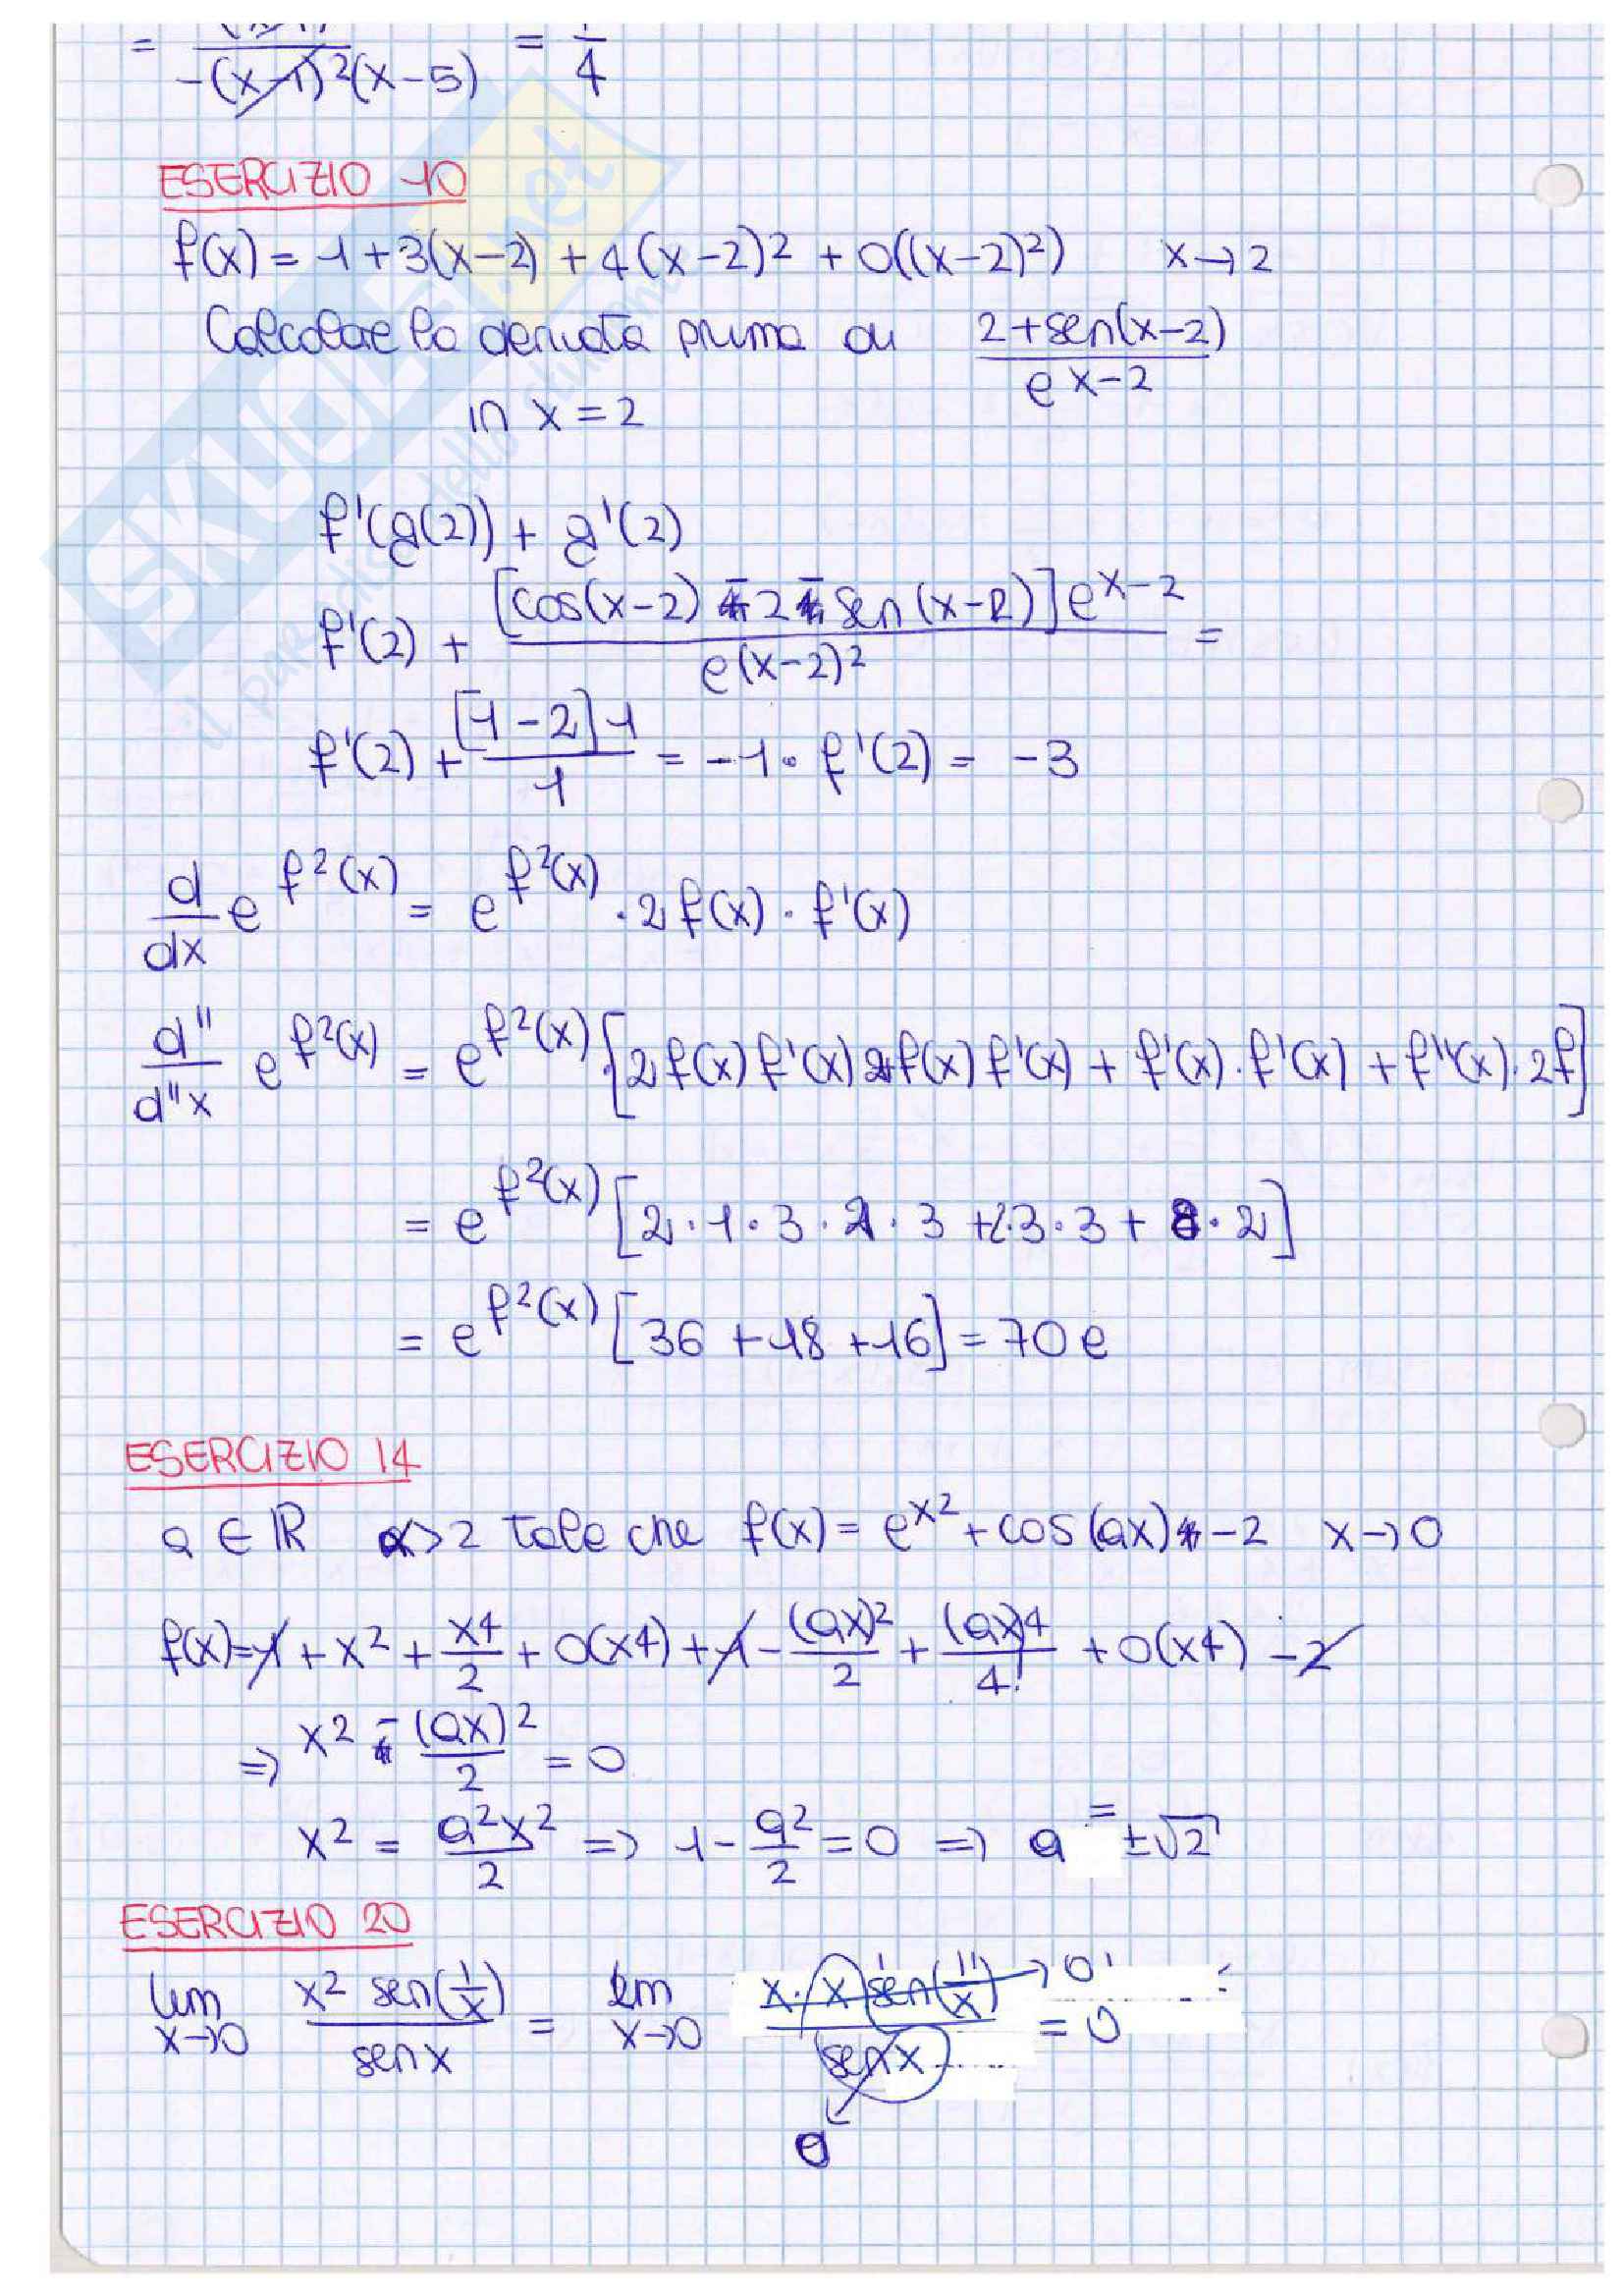 = (x-1)² / -(x-1)²(x-5) = 1/4
ESERCIZIO 10
f(x) = 1+3(x-2) + 4(x-2)² + o((x-2)²) x→2
Calcolare la derivata prima di (2+sen(x-2)) / e^(x-2)
in x=2
f'(g(2)) + g'(2)
f'(2) + [cos(x-2) - 2 - sen(x-2)] e^(x-2) / e(x-2)² =
f'(2) + [1-2]1 / 1 = -1 · f'(2) = -3
d/dx e^f²(x) = e^f²(x) · 2f(x) · f'(x)
d''/d''x e^f²(x) = e^f²(x) · [2f(x)f'(x)2f(x)f'(x) + f'(x)·f'(x) + f''(x)·2f]
= e^f²(x) [2·1·3·2·3 + 2·3·3 + 8·2]
= e^f²(x) [36 + 18 + 16] = 70e
ESERCIZIO 14
a ∈ ℝ α>2 tale che f(x) = e^x² + cos(ax) - 2 x→0
f(x) = 1 + x² + x4/2 + o(x4) + 1 - (ax)²/2 + (ax)4/4! + o(x4) - 2
⇒ x² - (ax)²/2 = 0
x² = a²x²/2 ⇒ 1 - a²/2 = 0 ⇒ a = ±√2
ESERCIZIO 20
lim x→0 x² sen(1/x) / sen x = lim x→0 x·x sen(1/x) / sen x →0 = 0
0
SKUOLA.net
il paradiso dello studente